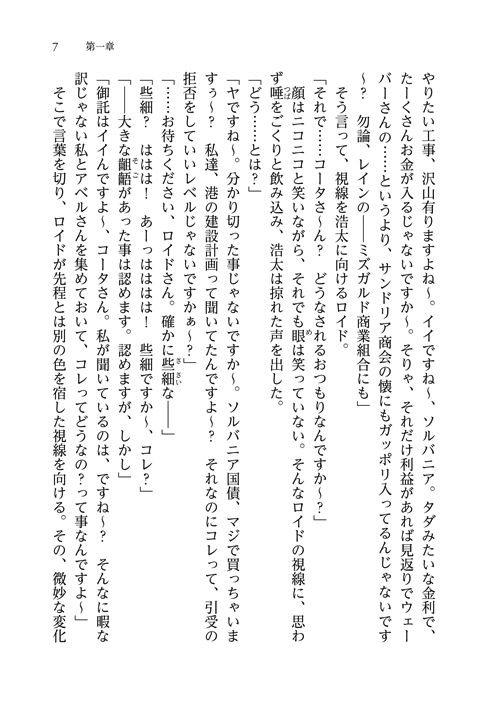 7　第一章
やりたい工事、沢山有りますよね～。イイですね～、ソルバニア。タダみたいな金利で、
たーくさんお金が入るじゃないですか～。そりゃ、それだけ利益があれば見返りでウェー
バーさんの……というより、サンドリア商会の懐にもガッポリ入ってるんじゃないです
～？　勿論、レインの――ミズガルド商業組合にも」
　そう言って、視線を浩太に向けるロイド。
「それで……コータさ～ん？　どうなされるおつもりなんですか～？」
　顔はニコニコと笑いながら、それでも眼は笑っていない。そんなロイドの視線に、思わ
ず唾をごくりと飲み込み、浩太は掠れた声を出した。
「どう……とは？」
「ヤですね～。分かり切った事じゃないですか～。ソルバニア国債、マジで買っちゃいま
すぅ～？　私達、港の建設計画って聞いてたんですよ～？　それなのにコレって、引受の
拒否をしていいレベルじゃないですかぁ～？」
「……お待ちください、ロイドさん。確かに些細な――」
「些細？　ははは！　あーっはははは！　些細ですか～、コレ？」
「――大きな齟齬があった事は認めます。認めますが、しかし」
「御託はイイんですよ～、コータさん。私が聞いているのは、ですね～？　そんなに暇な
訳じゃない私とアベルさんを集めておいて、コレってどうなの？って事なんですよ～」
　そこで言葉を切り、ロイドが先程とは別の色を宿した視線を向ける。その、微妙な変化